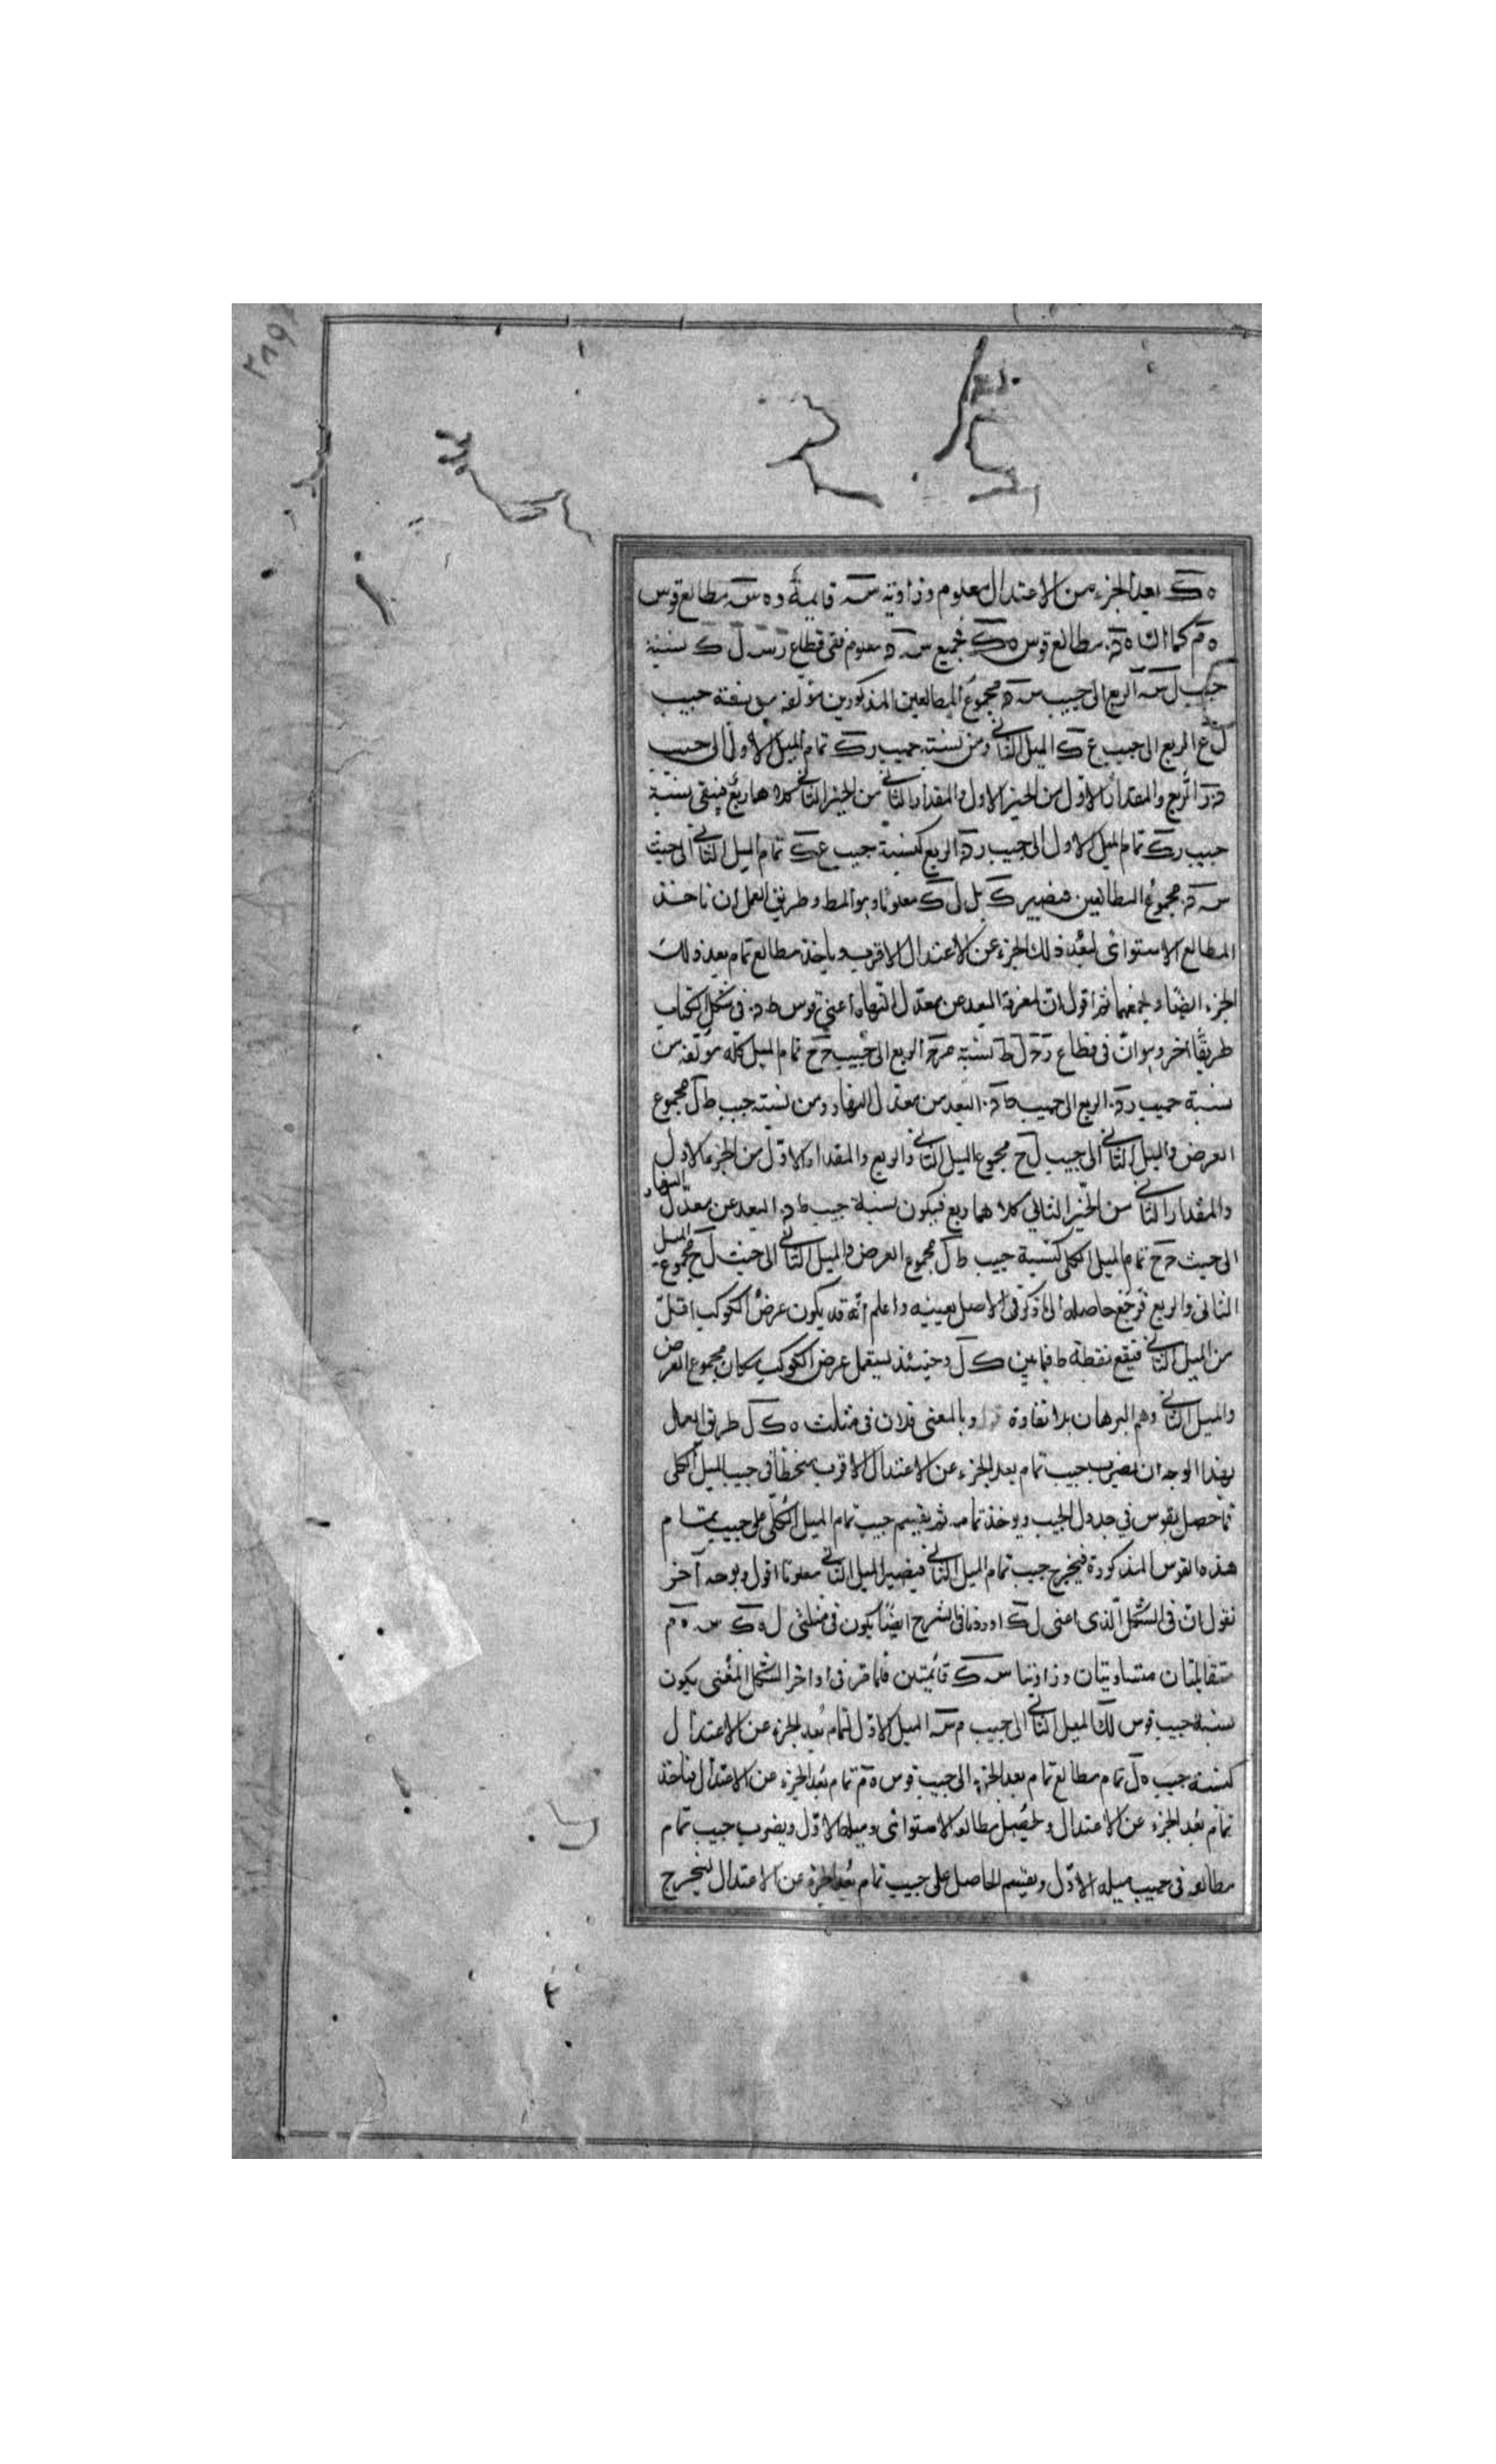 ه ك بعد الجزء من الاعتدال معلوم وزاوية س قايمة و ه س مطالع قوس
ه م كما ان ه د مطالع قوس ه ك فجميع س د معلوم ففي قطاع ر س ل ك نسبة
جيب ل س الربع الى جيب س د مجموع المطالعين المذكورين مؤلفه من نسبة جيب
ل ع الربع الى جيب ع ك الميل الثاني ومن نسبة جيب ر ك تمام الميل الاول الى جيب
د ر الربع والمقدار الاول من الحيز الاول والمقدار الثاني من الحيز الثاني كلاهما ربع فبقي نسبة
جيب ر ك تمام الميل الاول الى جيب ر د الربع كنسبة جيب ع ك تمام الميل الثاني الى جيب
س د مجموع المطالعين فيصير ك ل معلوما وهو المط وطريق العمل ان ناخذ
المطالع الاستوائى لبعد ذلك الجزء عن الاعتدال الاقرب وياخذ مطالع تمام بعد ذلك
الجزء ايضا ويجمعهما ثم اقول ان لمعرفة البعد عن معدل النهار اعني قوس ط د في شكل الكتاب
طريقا اخر وهو ان في قطاع ر ح ل ط نسبة الربع الى جيب ح تمام الميل كله مؤلفه من
نسبة جيب ر د الربع الى جيب ط د البعد من معدل النهار ومن نسبة جيب ط ل مجموع
العرض والميل الثاني الى جيب ل ح مجموع الميل الثاني والربع والمقدار الاول من الجزء الاول
والمقدار الثاني من الحيز الثاني كلاهما ربع فيكون نسبة جيب ط د البعد عن معدل النهار
الى جيب ح تمام الميل الكلى كنسبة جيب ط ل مجموع العرض والميل الثاني الى جيب ل ح مجموع الميل
الثانى والربع فرجع حاصله الى ما ذكر فى الاصل بعينه واعلم انه قد يكون عرض الكوكب اقل
من الميل الثاني فتقع نقطة ط فيما بين ك ل وحينئذ يستعمل عرض الكوكب مكان مجموع العرض
والميل الثاني وهم البرهان بلا تفاوة وبالمغنى فلان فى مثلث ه ك ل طريق العمل
بهذا الوجه ان يضرب جيب تمام بعد الجزء عن الاعتدال الاقرب منحطا فى جيب الميل الكلى
فما حصل يقوس في جدول الجيب ويوخذ تمامه ثم يقسم جيب تمام الميل الكلى على جيب تمام
هذه القوس المذكورة فيخرج جيب تمام الميل الثاني فيصير الميل الثاني معلوما اقول وبوجه آخر
نقول ان فى الشكل الذى اعنى ل ك اوردنا فى الشرح ايضا يكون فى مثلثى ل ه ك س ه م
متقابلتان متساويتان وزاويتا س ك قائمتين فلما مر فى اواخر الشكل المغنى يكون
نسبة جيب قوس ل ك الميل الثاني الى جيب م س الميل الاول لتمام بعد الجزء عن الاعتدال
كنسبة جيب ه ل تمام مطالع تمام بعد الجزء الى جيب قوس ه م تمام بعد الجزء عن الاعتدال فناخذ
تمام بعد الجزء عن الاعتدال ويحصل مطالعه الاستوائى وميله الاول ويضرب جيب تمام
مطالعه فى جيب ميله الاول ويقسم الحاصل على جيب تمام بعد الجزء عن الاعتدال ليخرج